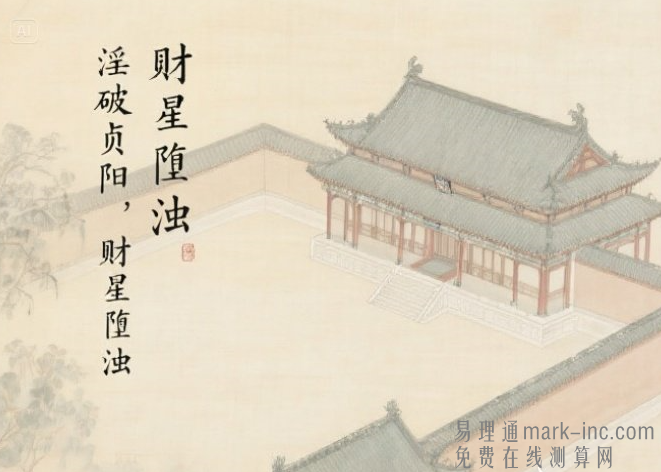 财星堕浊
淫破贞阳，财星堕浊
易理通mark-inc.com
免费在线测算网